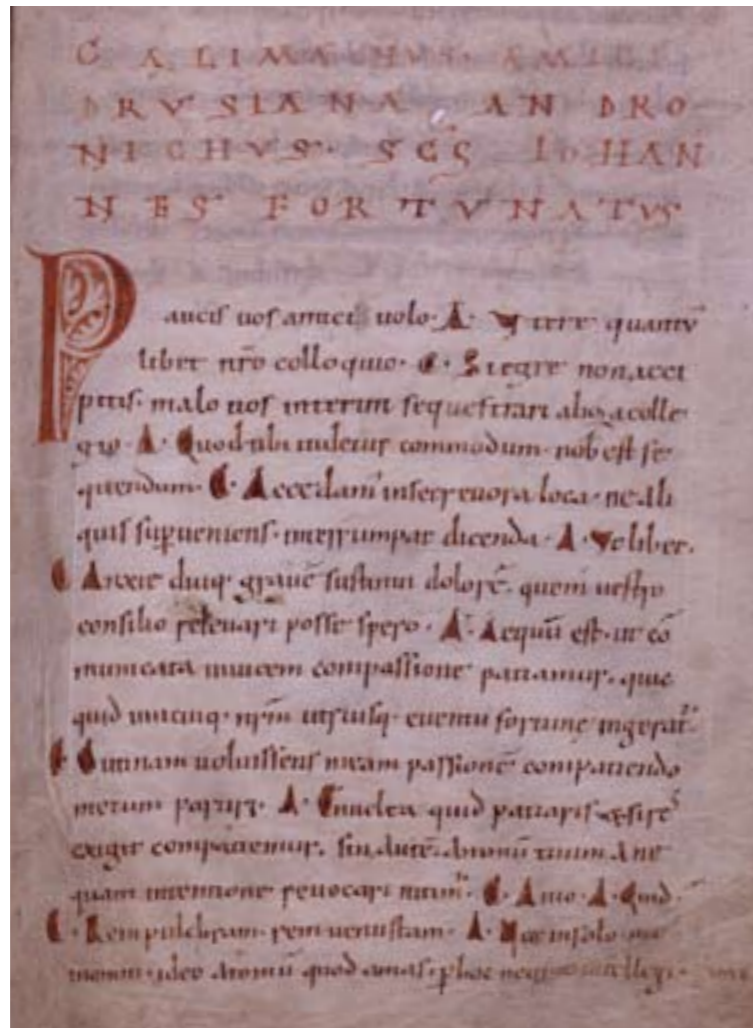 CALIMACHUS. AMICI
DRVSIANA. ANDRO
NICHVS. SCS IOHAN
NES FORTVNATUS
Paucis uos amici uolo. A. Vtere quantū
libet nr̄o colloquio. C. Si egre non acci
pitis. malo uos interim sequestrari aliorū colle
gio. A. Quod tibi uidetur commodum. nob̄ est se
quendum. C. Accedam' in secretiora loca. ne ali
quis sup̱ueniens. interrumpat dicenda. A. Vt libet.
C Anxie diuq; grauē sustinui dolorē. quem uestro
consilio releuari posse spero. A. Aequū est. ut cō
municata inuicem compassione patiamur. quic
quid unicuiq; nr̄m utriusq; euentu fortunę ingerat'.
C O utinam uoluissetis meam passionē compatiendo
mecum partiri. A. Enuclea quid patiaris & si res
exigit compatiemur. sin autē animū tuum a ne
quam intentione reuocari nitim'. C. Amo. A. Quid.
C. Rem pulchram. rem uenustam. A. Nec in solo. nec
in omni. ideo atomū quod amas. p̱ hoc nequit intellegi.